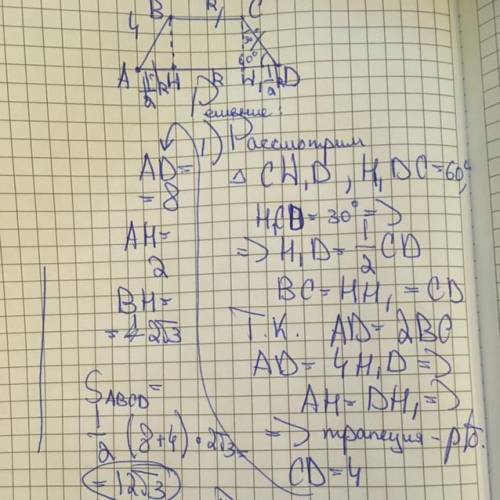 B R C
4
30°
60°
A 1/2 R H R H₁ 1/2 R D
Решение:
1) Рассмотрим
△ CH₁D, H₁DC=60°,
H₁CD=30° =>
=> H₁D=1/2 CD
BC=HH₁=CD
Т.к. AD=2BC
AD=4H₁D=>
AH=DH₁=>
=> трапеция-р/б.
CD=4
AD=
=8
AH=
2
BH=
=2√3
S ABCD=
1/2 (8+4)·2√3=
=12√3